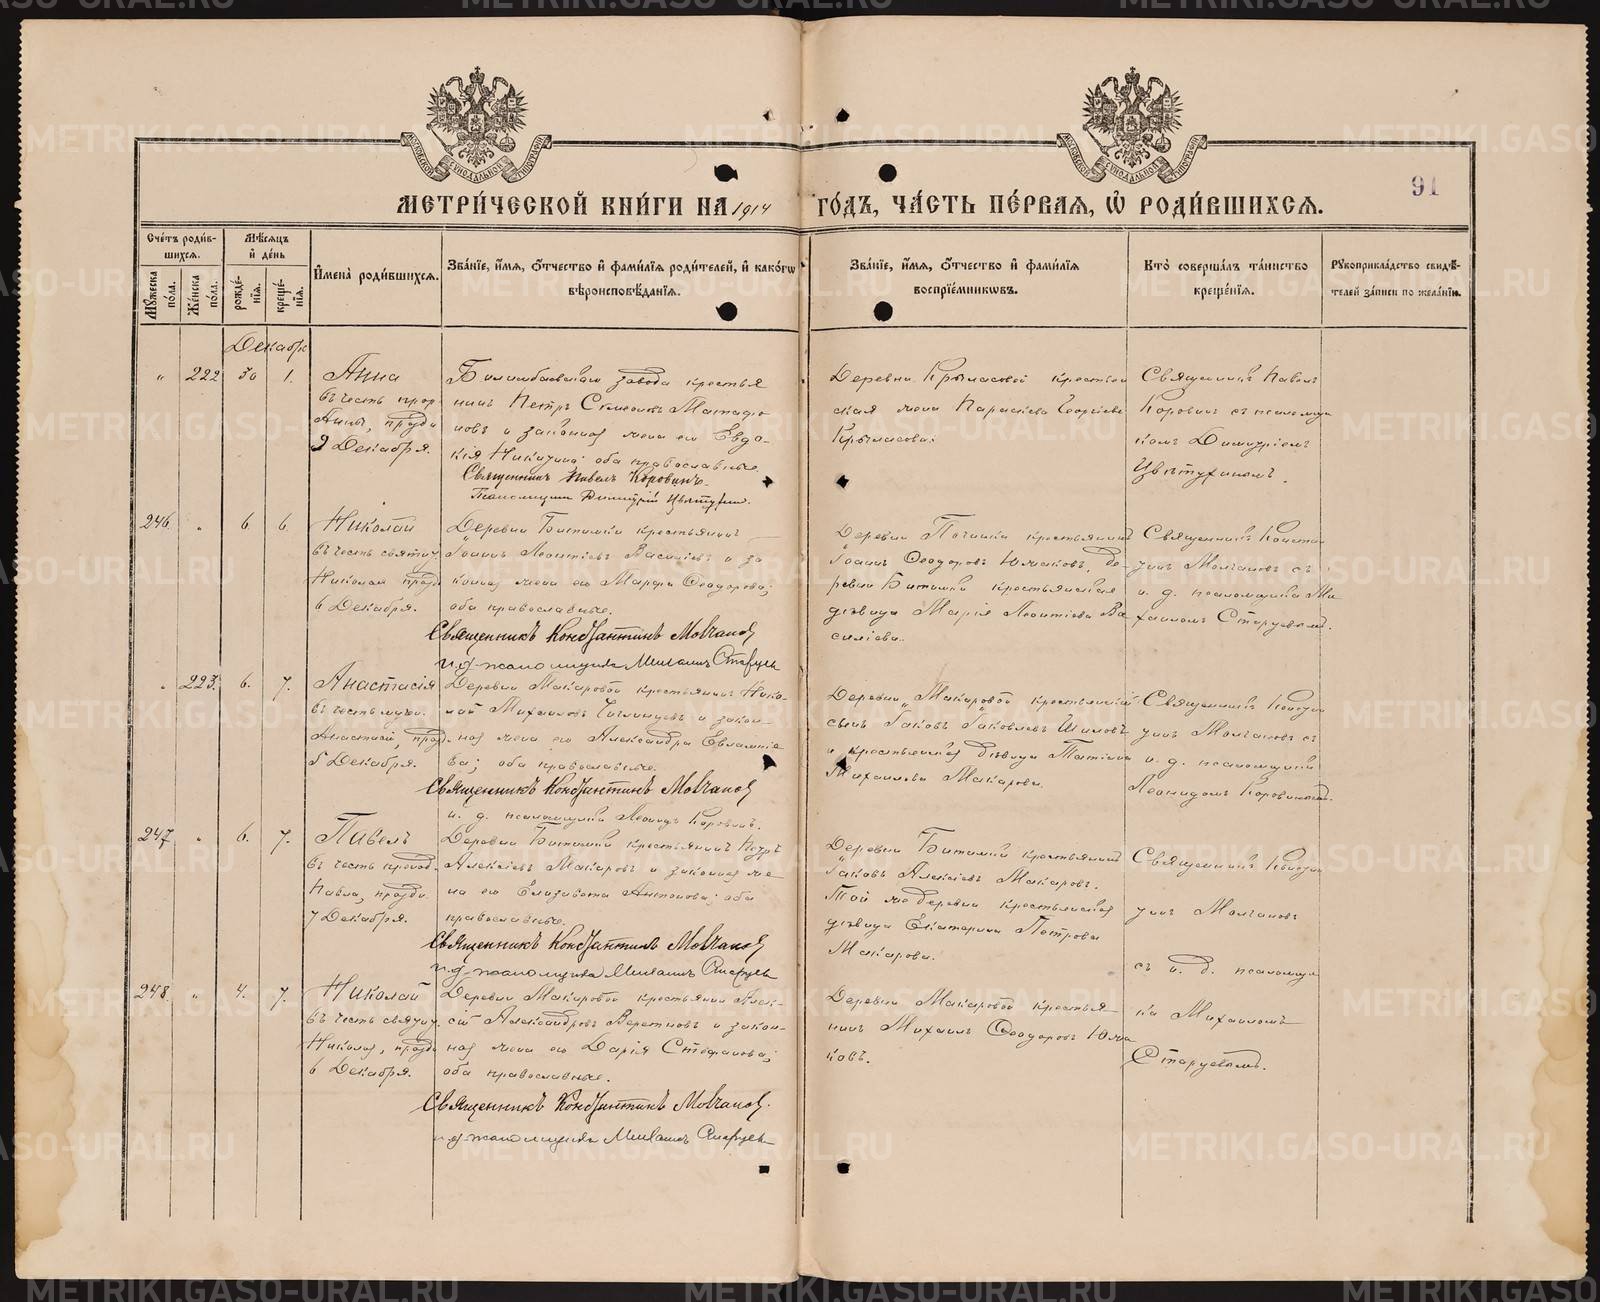 МЕТРИ́ЧЕСКОЙ КНИ́ГИ НА 1914 ГО́ДЪ, ЧА́СТЬ ПЕ́РВАЯ, Ѡ РОДИ́ВШИХСЯ.
91
Сче́тъ роди́в-
шихся.
Мѣ́сяцъ
и҆ де́нь
Му́жеска по́ла.
Же́нска по́ла.
рожде́нїя.
креще́нїя.
И҆мена̀ роди́вшихся.
Зва́нїе, и҆́мя, ѻ҆́тчество и҆ фами́лїя роди́телей, и҆ како́гѡ
вѣроисповѣ́данїя.
Зва́нїе, и҆́мя, ѻ҆́тчество и҆ фами́лїя
воспрїе́мникѡвъ.
Кто̀ соверша́лъ та́инство
креще́нїя.
Рукоприкла́дство свидѣ́-
телей за́писи по жела́нїю.
Декабрь
" 222 30 1. Анна
въ честь прор.
Анны, праздн.
9 Декабря.
Билимбаевскаго завода крестья
нинъ Петръ Симеоновъ
новъ и законная жена его Евдо-
кія Никитина: оба православные.
Священникъ Павелъ Коровинъ.
Псаломщикъ Димитрій Цвѣтухинъ.
Деревни Крыласовой крестьян
ская жена Параскева Георгіева
Крыласова.
Священникъ Павелъ
Коровинъ съ псаломщи
комъ Димитріемъ
Цвѣтухинымъ.
246 " 6 6. Николай
въ честь святит.
Николая празд.
6 Декабря.
Деревни Битимки крестьянинъ
Іоаннъ Леонтіевъ Василіевъ и за
конная жена его Марфа Ѳеодорова;
оба православные.
Священникъ Константинъ Молчановъ
и. д. псаломщика Михаилъ Старцевъ
Деревни Починки крестьянинъ
Іоаннъ Ѳеодоровъ Юмаковъ, де-
ревни Битимки крестьянская
дѣвица Марія Леонтіева Ва
силіева.
Священникъ Конста
нтинъ Молчановъ съ
и. д. псаломщика Ми
хаиломъ Старцевымъ.
" 223. 6. 7. Анастасія
въ честь муч.
Анастасіи, празд.
5 Декабря.
Деревни Макаровой крестьянинъ Нико-
лай Михаиловъ и закон-
ная жена его Александра Евлампіе
ва; оба православные.
Священникъ Константинъ Молчановъ
и. д. псаломщика Леонидъ Коровинъ.
Деревни Макаровой крестьянскій
сынъ Іаковъ Іаковлевъ Шиловъ
и крестьянская дѣвица Татіана
Михаилова Макарова.
Священникъ Констан
тинъ Молчановъ съ
и. д. псаломщика
Леонидомъ Коровинымъ.
247 " 6. 7. Павелъ
въ честь препод.
Павла, праздн.
7 Декабря.
Деревни Битимки крестьянинъ Петръ
Алексіевъ Макаровъ и законная же
на его Елизавета Антонова; оба
православные.
Священникъ Константинъ Молчановъ
и. д. псаломщика Михаилъ Старцевъ
Деревни Битимки крестьянинъ
Іаковъ Алексіевъ Макаровъ.
Той же деревни крестьянская
дѣвица Екатерина Петрова
Макарова.
Священникъ Констан
тинъ Молчановъ
съ и. д. псаломщи
ка Михаиломъ
Старцевымъ.
248. " 4. 7. Николай
въ честь святит.
Николая, праздн.
6 Декабря.
Деревни Макаровой крестьянинъ Алек-
сій Александровъ Веретновъ и закон-
ная жена его Дарія Стефанова;
оба православные.
Священникъ Константинъ Молчановъ.
и. д. псаломщика Михаилъ Старцевъ
Деревни Макаровой крестья
нинъ Михаилъ Ѳеодоровъ Юма
ковъ.
METRIKI.GASO-URAL.RU